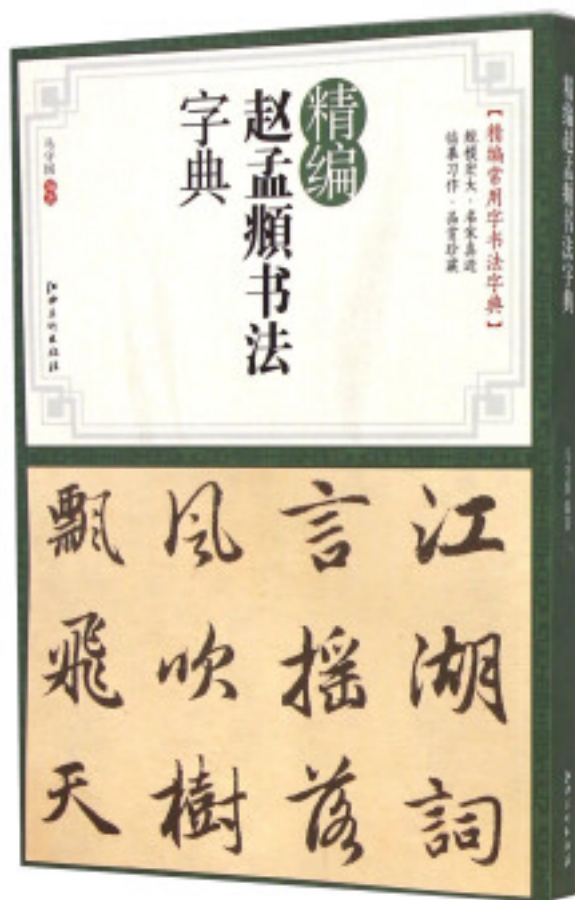 【精编常用字书法字典】
规模宏大·名家真迹
临摹习作·品赏珍藏
精编
赵孟頫书法
字典
马守国 编著
江西美术出版社
江湖詞
言摇落
風吹樹
飄飛天
精编赵孟頫书法字典
马守国 编著
江西美术出版社